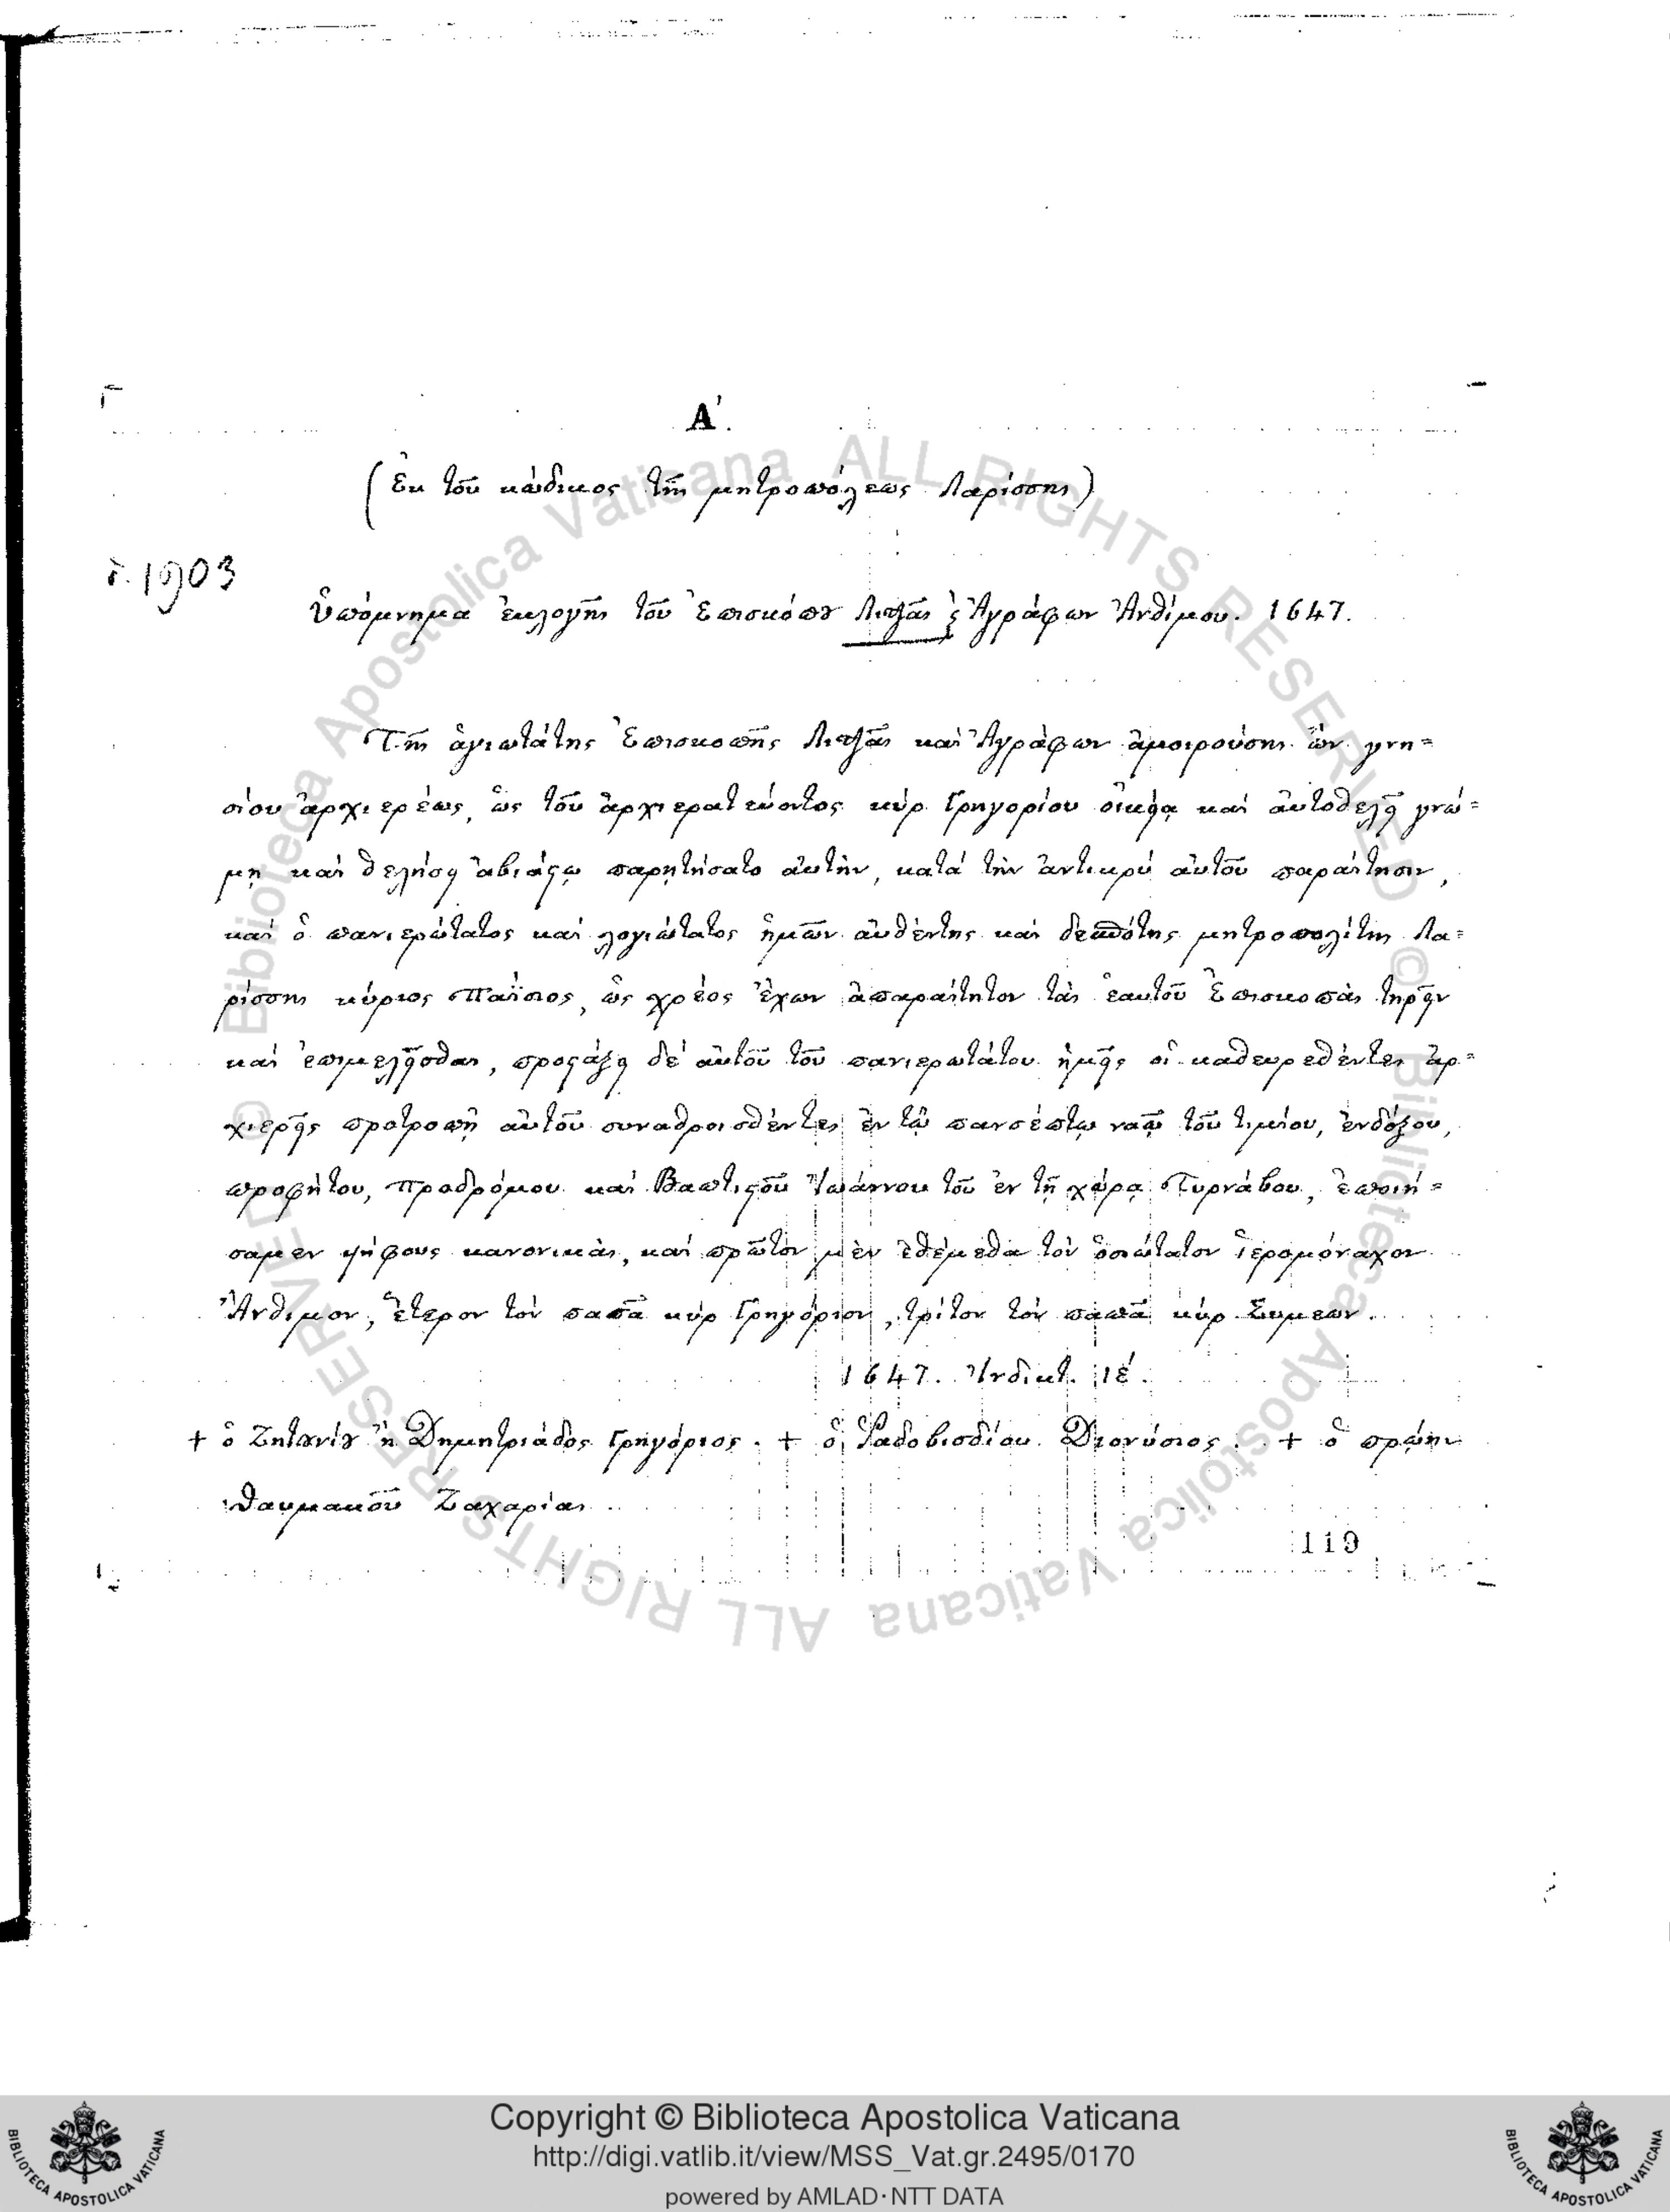 Α΄.
(Ἐκ τοῦ κώδικος τῆς μητροπόλεως Λαρίσσης)
1903
Ὑπόμνημα ἐκλογῆς τοῦ Ἐπισκόπου Λιτζᾶς ϗ Ἀγράφων Ἀνθίμου. 1647.
Τῆς ἁγιωτάτης Ἐπισκοπῆς Λιτζᾶς καὶ Ἀγράφων ἀμοιρούσης ὢν γνη=
σίου ἀρχιερέως, ὡς τοῦ ἀρχιερατεύοντος κὺρ Γρηγορίου οἰκείᾳ καὶ αὐτοθελεῖ γνώ=
μῃ καὶ θελήσει ἀβιάστῳ παρῃτήσατο αὐτὴν, κατὰ τὴν ἀντικρύ αὐτοῦ παραίτησιν,
καὶ ὁ πανιερώτατος καὶ λογιώτατος ἡμῶν αὐθέντης καὶ δεσπότης μητροπολίτης Λα=
ρίσσης κύριος Παΐσιος, ὡς χρέος ἔχων ἀπαραίτητον τὰς ἑαυτοῦ Ἐπισκοπὰς τηρεῖν
καὶ ἐπιμελεῖσθαι, προστάξει δὲ αὐτοῦ τοῦ πανιερωτάτου ἡμεῖς οἱ καθευρεθέντες ἀρ=
χιερεῖς προτροπῇ αὐτοῦ συναθροισθέντες ἐν τῷ πανσέπτῳ ναῷ τοῦ τιμίου, ἐνδόξου,
προφήτου, Προδρόμου καὶ Βαπτιστοῦ Ἰωάννου τοῦ ἐν τῇ χώρᾳ Τυρνάβου, ἐποιή=
σαμεν ψήφους κανονικὰς, καὶ πρῶτον μὲν ἐθέμεθα τὸν ὁσιώτατον ἱερομόναχον
Ἄνθιμον, ἕτερον τὸν παπᾶ κὺρ Γρηγόριον, τρίτον τὸν παπᾶ κὺρ Συμεων.
1647. Ἰνδικτ. ιέ.
+ ὁ Ζητουνίου ἢ Δημητριάδος Γρηγόριος. + ὁ Ῥαδοβισδίου Διονύσιος. + ὁ πρώην
Θαυμακοῦ Ζαχαρίας
119
© Biblioteca Apostolica Vaticana ALL RIGHTS RESERVED
© Biblioteca Apostolica Vaticana ALL RIGHTS RESERVED
Copyright © Biblioteca Apostolica Vaticana
http://digi.vatlib.it/view/MSS_Vat.gr.2495/0170
powered by AMLAD·NTT DATA
BIBLIOTECA APOSTOLICA VATICANA
BIBLIOTECA APOSTOLICA VATICANA